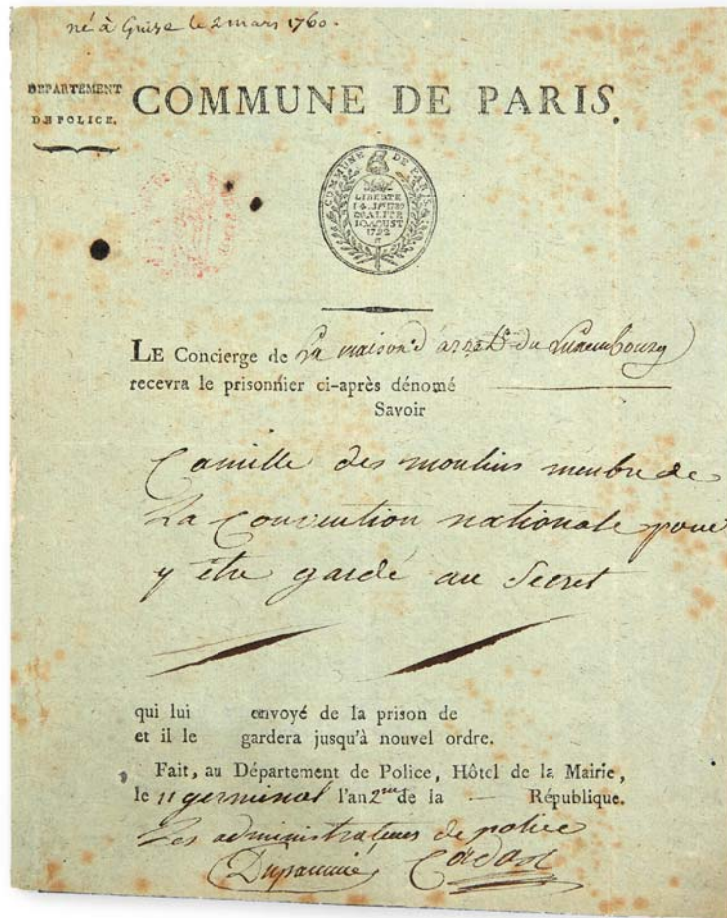 né à Guise le 2 mars 1760.
DEPARTEMENT
DE POLICE.
COMMUNE DE PARIS.
COMMUNE DE PARIS.
LIBERTE
14 JUILLET
EGALITE
10 AOUST
1792
LE Concierge de La maison d'arrêt du Luxembourg
recevra le prisonnier ci-après dénomé
Savoir
Camille des moulins membre de
La Convention nationale pour
y être gardé au Secret
qui lui envoyé de la prison de
et il le gardera jusqu'à nouvel ordre.
Fait, au Département de Police, Hôtel de la Mairie,
le 11 germinal l'an 2me de la République.
Les administrateurs de police